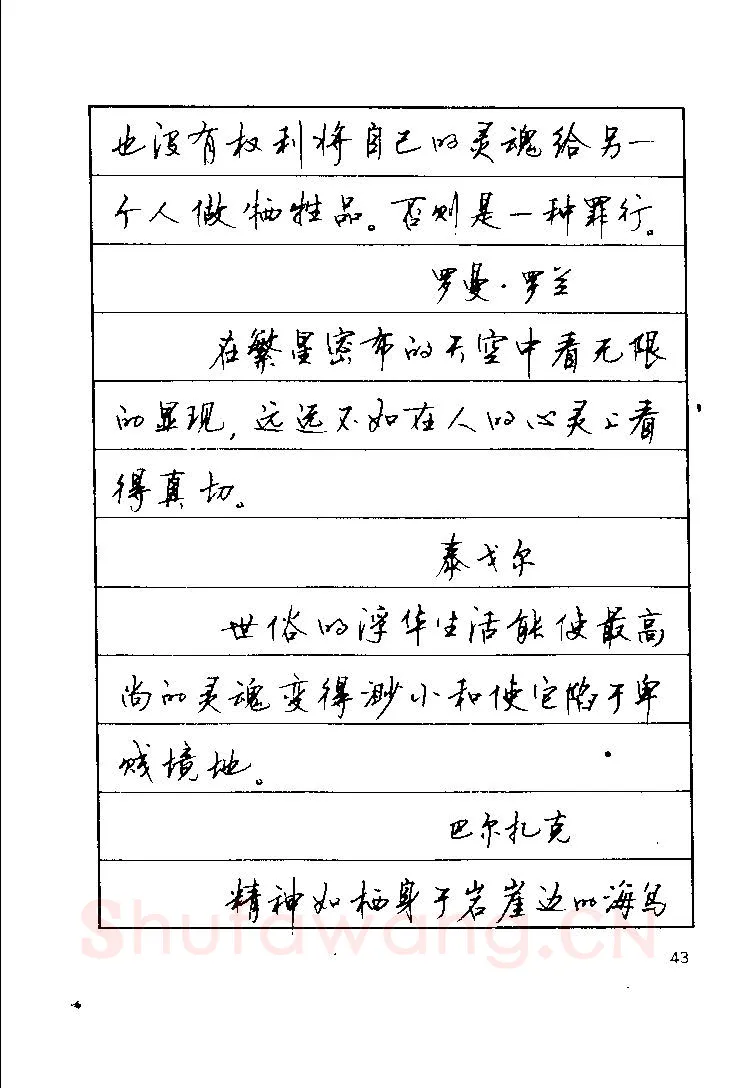 也没有权利将自己的灵魂给另一
个人做牺牲品。否则是一种罪行。
罗曼·罗兰
在繁星密布的天空中看无限
的显现,远远不如在人的心灵上看
得真切。
泰戈尔
世俗的浮华生活能使最高
尚的灵魂变得渺小和使它陷于卑
贱境地。
巴尔扎克
精神如栖身于岩崖边的海鸟
Shufawang.CN
43